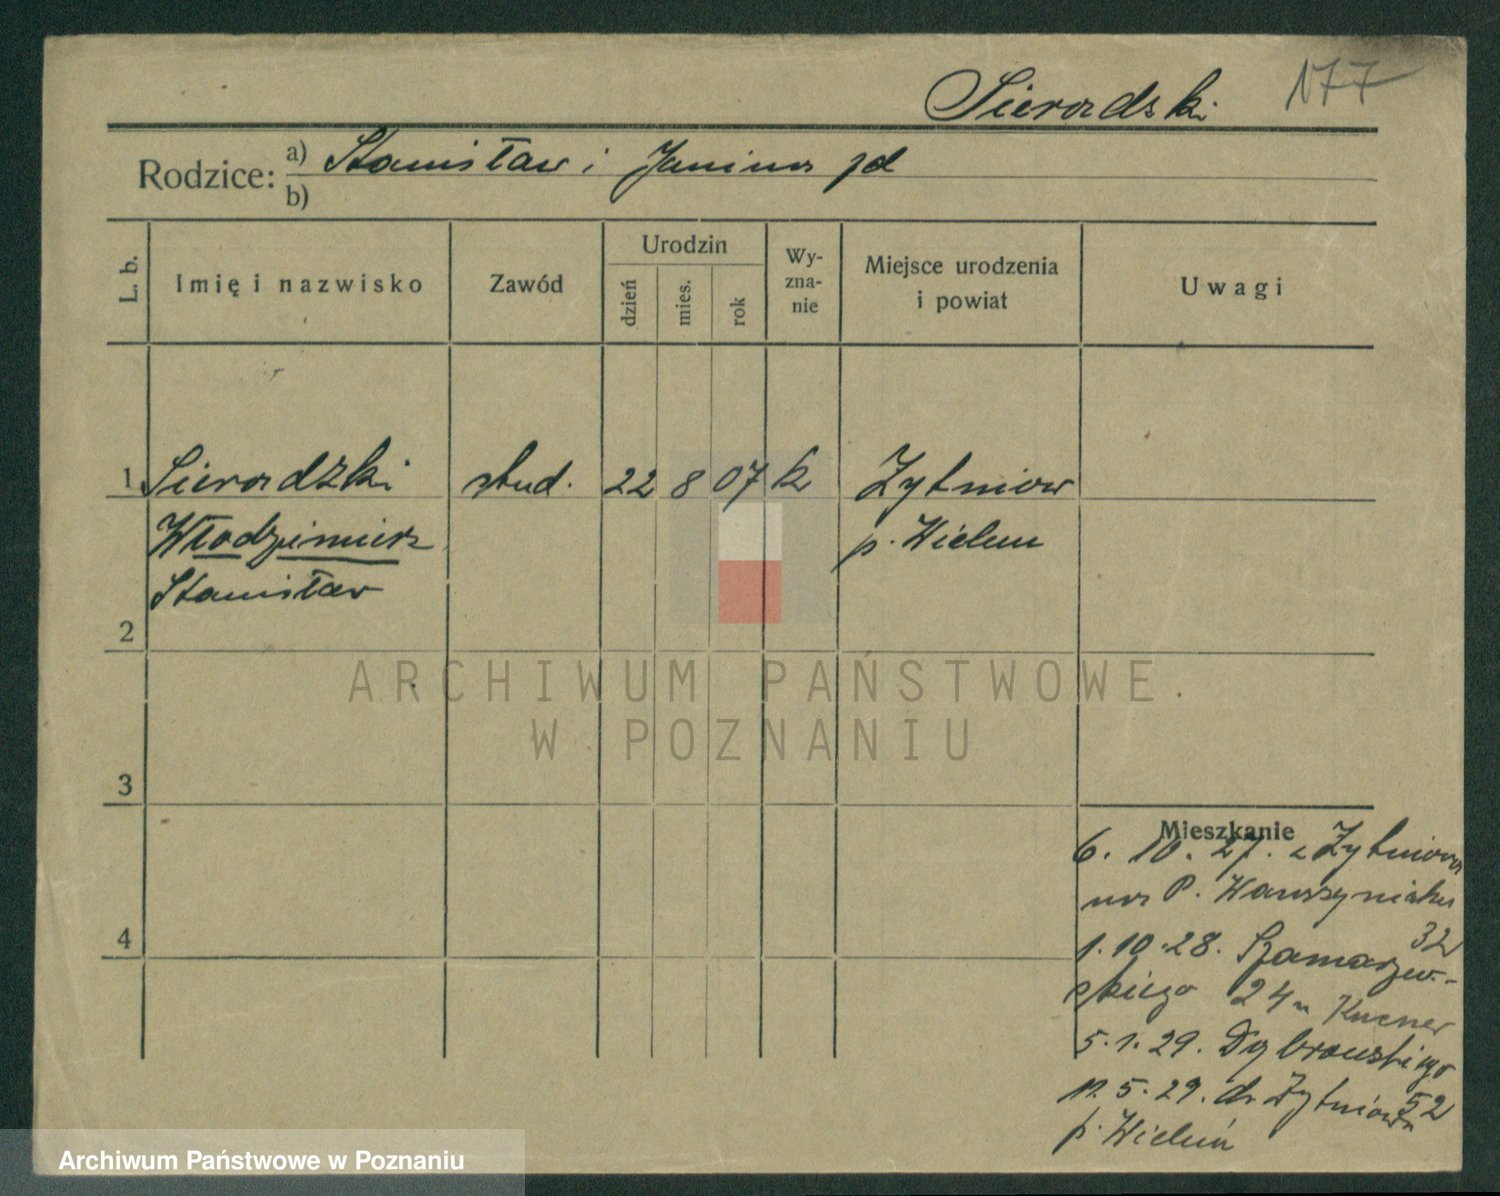 Sieradzki 177
Rodzice: a) Stanisław i Janina jd
b)
L. b.
Imię i nazwisko
Zawód
Urodzin
dzień
mies.
rok
Wy-
zna-
nie
Miejsce urodzenia
i powiat
Uwagi
1 Sieradzki stud. 22 8 07 k Żytniow
Włodzimierz p. Wielun
Stanisław
2
3
4
Mieszkanie
6. 10. 27. z Żytniowa
na P. Wawrzyniaka
32
1. 10. 28. Szamarzew-
skiego 24 u Kucner
5. 1. 29. Dąbrowskiego
52
12. 5. 29. do Żytniowa
p. Wieluń
ARCHIWUM PAŃSTWOWE
W POZNANIU
Archiwum Państwowe w Poznaniu